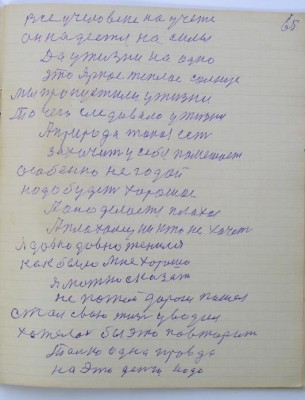 65
Все у человека на учете
он надеется на силы
Да у жизни на одно
это яркое теплое солнце
мы пропустили у жизни
То чего следовало у жизни
А природа такая есть
захочит у себя помешает
особенно негодой
надо будет хорошае
А оно делается плахое
А плахому ни кто не хочет
Я давно давно женился
как было мне хорошо
Я можно сказат
не по той дороги пошол
стал свою жизнь уводил
хотелос бы это повторит
Толко одна правда
на это дети надо